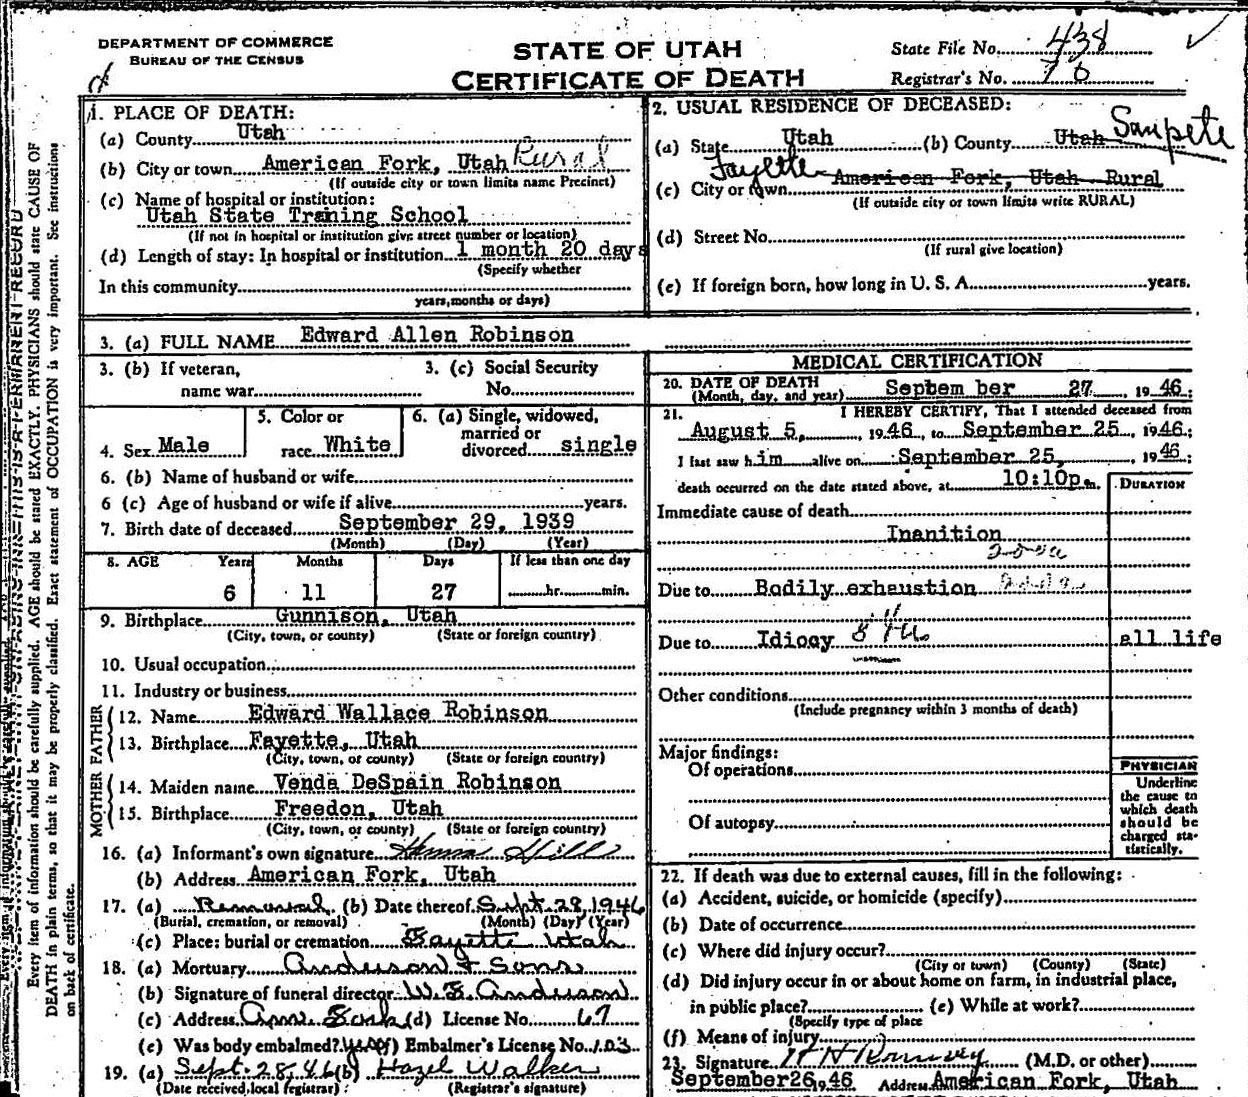 DEPARTMENT OF COMMERCE
BUREAU OF THE CENSUS
STATE OF UTAH
CERTIFICATE OF DEATH
State File No. 438
Registrar's No. 70
1. PLACE OF DEATH:
(a) County Utah
(b) City or town American Fork, Utah Rural
(If outside city or town limits name Precinct)
(c) Name of hospital or institution:
Utah State Traning School
(If not in hospital or institution give street number or location)
(d) Length of stay: In hospital or institution 1 month 20 days
(Specify whether
In this community
years, months or days)
2. USUAL RESIDENCE OF DECEASED:
(a) State Utah (b) County Utah Sanpete
Fayette
(c) City or town American Fork, Utah Rural
(If outside city or town limits write RURAL)
(d) Street No.
(If rural give location)
(e) If foreign born, how long in U. S. A. years.
3. (a) FULL NAME Edward Allen Robinson
3. (b) If veteran,
name war
3. (c) Social Security
No.
4. Sex Male
5. Color or
race White
6. (a) Single, widowed,
married or
divorced single
6. (b) Name of husband or wife
6 (c) Age of husband or wife if alive years.
7. Birth date of deceased September 29, 1939
(Month) (Day) (Year)
8. AGE Years Months Days If less than one day
6 11 27 hr. min.
9. Birthplace Gunnison, Utah
(City, town, or county) (State or foreign country)
10. Usual occupation
11. Industry or business
FATHER
12. Name Edward Wallace Robinson
13. Birthplace Fayette, Utah
(City, town, or county) (State or foreign country)
MOTHER
14. Maiden name Venda DeSpain Robinson
15. Birthplace Freedon, Utah
(City, town, or county) (State or foreign country)
16. (a) Informant's own signature
(b) Address American Fork, Utah
17. (a) Removal (b) Date thereof Sept. 28, 1946
(Burial, cremation, or removal) (Month) (Day) (Year)
(c) Place: burial or cremation Fayette Utah
18. (a) Mortuary Anderson & Sons
(b) Signature of funeral director W. E. Anderson
(c) Address Am. Fork (d) License No. 67
(e) Was body embalmed? yes (f) Embalmer's License No. 103
19. (a) Sept. 28 46 (b) Hazel Walker
(Date received local registrar) (Registrar's signature)
MEDICAL CERTIFICATION
20. DATE OF DEATH
(Month, day, and year) Septem ber 27 19 46;
21. I HEREBY CERTIFY, That I attended deceased from
August 5, 1946, to September 25, 1946;
I last saw him alive on September 25, 1946;
death occurred on the date stated above, at 10:10p.m.
DURATION
Immediate cause of death
Inanition
Due to Bodily exhaustion
Due to Idiocy all life
Other conditions
(Include pregnancy within 3 months of death)
Major findings:
Of operations
Of autopsy
PHYSICIAN
Underline
the cause to
which death
should be
charged sta-
tistically.
22. If death was due to external causes, fill in the following:
(a) Accident, suicide, or homicide (specify)
(b) Date of occurrence
(c) Where did injury occur?
(City or town) (County) (State)
(d) Did injury occur in or about home on farm, in industrial place,
in public place? (e) While at work?
(Specify type of place
(f) Means of injury
23. Signature (M.D. or other)
September 26, 1946 Address American Fork, Utah
Every item of information should be carefully supplied. AGE should be stated EXACTLY. PHYSICIANS should state CAUSE OF
DEATH in plain terms, so that it may be properly classified. Exact statement of OCCUPATION is very important. See instructions
on back of certificate.